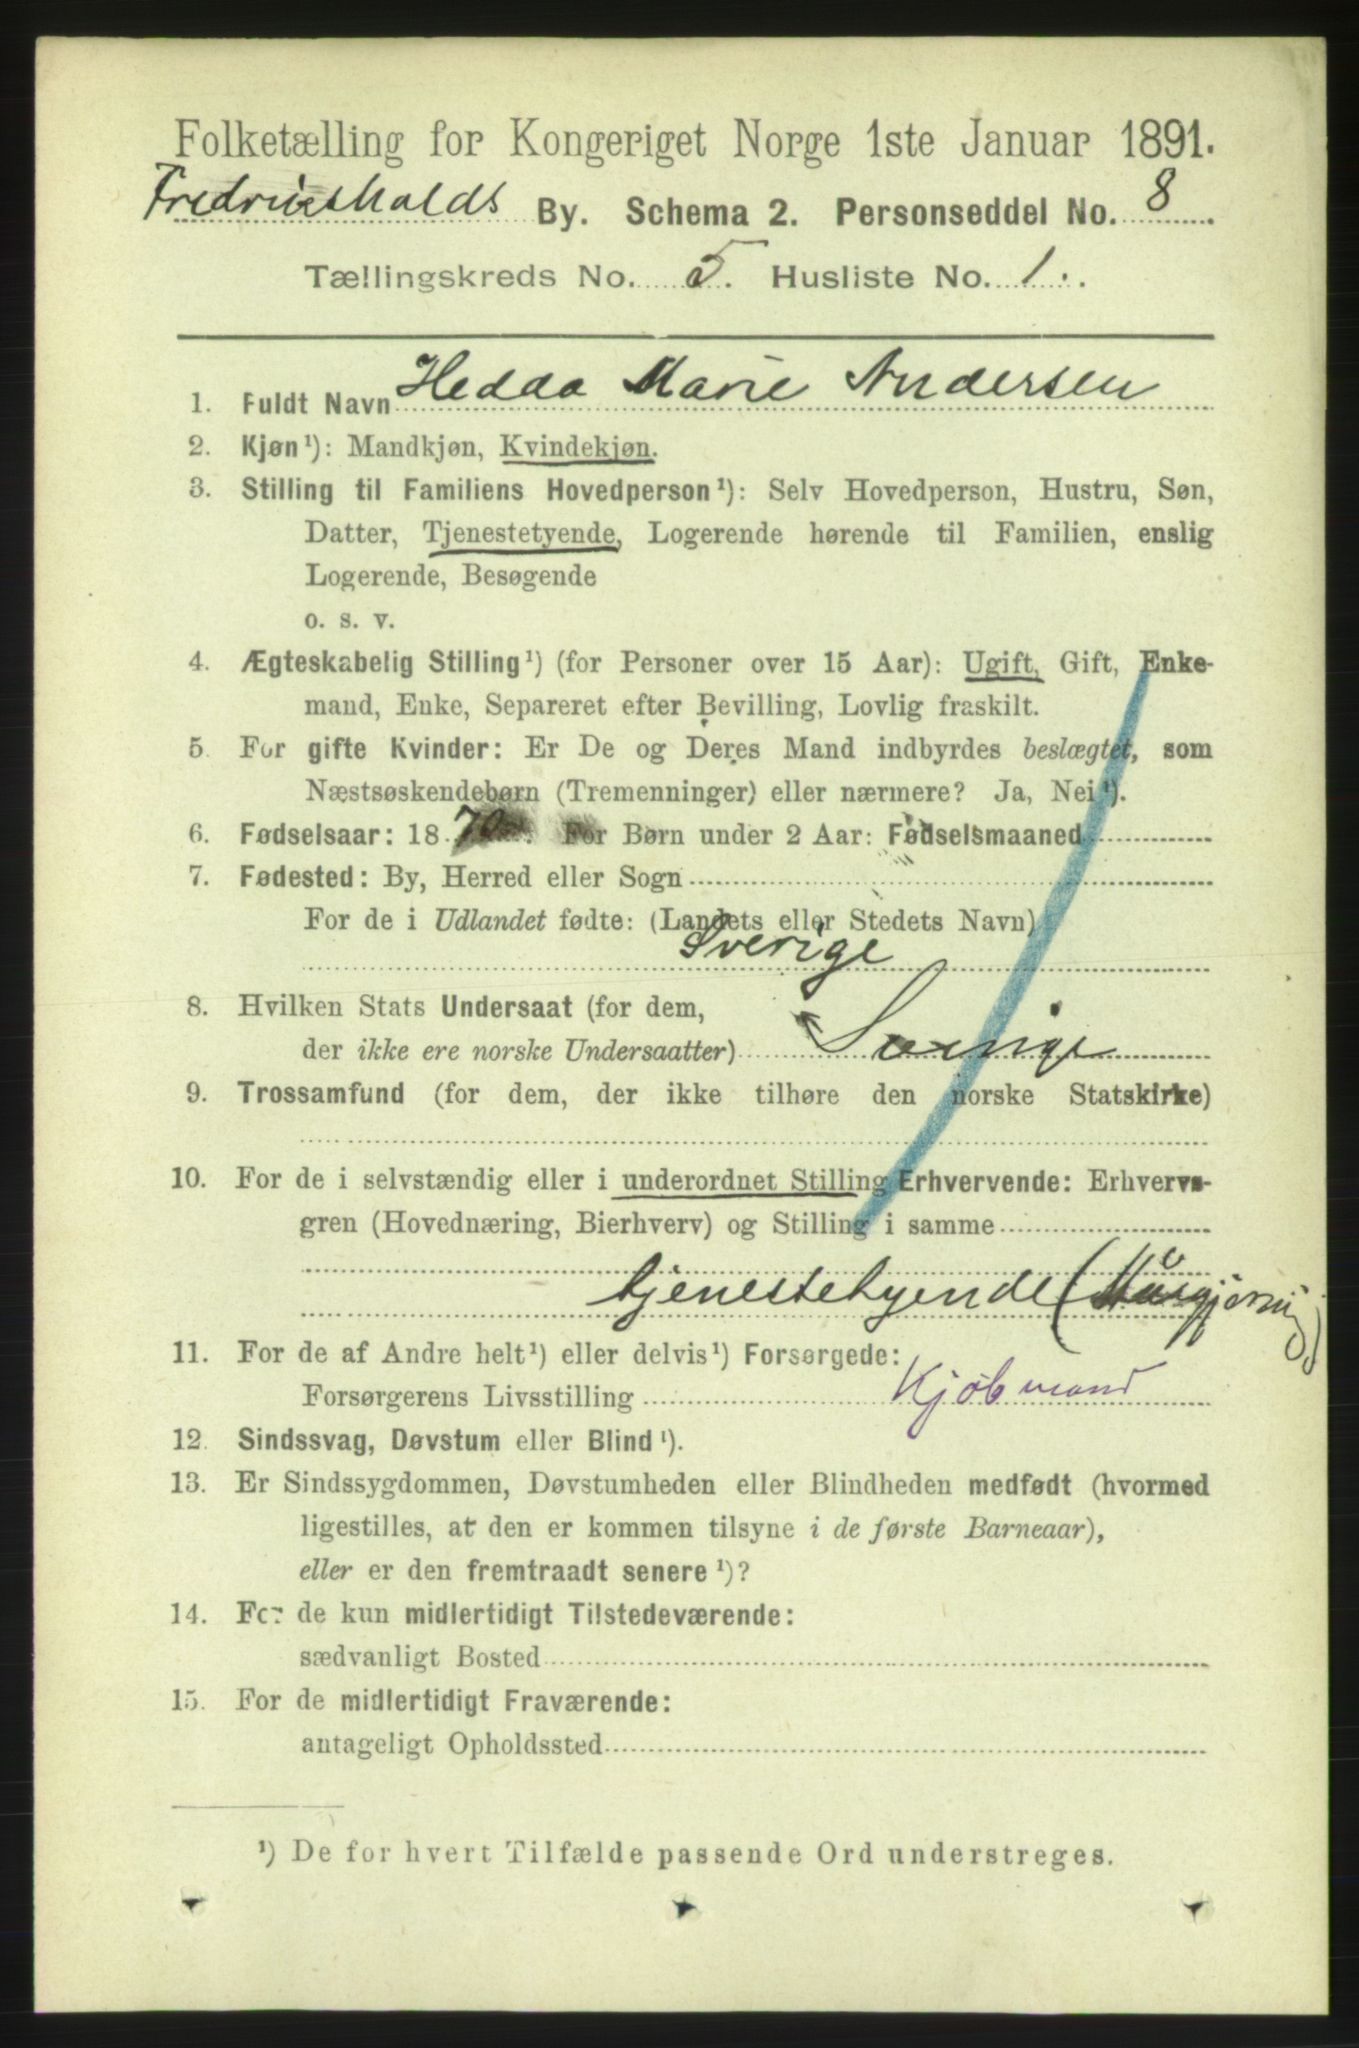 Folketælling for Kongeriget Norge 1ste Januar 1891.
Fredrikshalds By. Schema 2. Personseddel No. 8
Tællingskreds No. 5. Husliste No. 1.
1. Fuldt Navn Hedda Marie Andersen
2. Kjøn¹): Mandkjøn, Kvindekjøn.
3. Stilling til Familiens Hovedperson¹): Selv Hovedperson, Hustru, Søn,
Datter, Tjenestetyende, Logerende hørende til Familien, enslig
Logerende, Besøgende
o. s. v.
4. Ægteskabelig Stilling¹) (for Personer over 15 Aar): Ugift, Gift, Enke-
mand, Enke, Separeret efter Bevilling, Lovlig fraskilt.
5. For gifte Kvinder: Er De og Deres Mand indbyrdes beslægtet, som
Næstsøskendebørn (Tremenninger) eller nærmere? Ja, Nei¹).
6. Fødselsaar: 1870. For Børn under 2 Aar: Fødselsmaaned
7. Fødested: By, Herred eller Sogn
For de i Udlandet fødte: (Landets eller Stedets Navn)
Sverige
8. Hvilken Stats Undersaat (for dem,
der ikke ere norske Undersaatter) Sverige
9. Trossamfund (for dem, der ikke tilhøre den norske Statskirke)
10. For de i selvstændig eller i underordnet Stilling Erhvervende: Erhvervs-
gren (Hovednæring, Bierhverv) og Stilling i samme
tjenestetyende (Husgjerning)
11. For de af Andre helt¹) eller delvis¹) Forsørgede:
Forsørgerens Livsstilling Kjøbmand
12. Sindssvag, Døvstum eller Blind¹).
13. Er Sindssygdommen, Døvstumheden eller Blindheden medfødt (hvormed
ligestilles, at den er kommen tilsyne i de første Barneaar),
eller er den fremtraadt senere¹)?
14. For de kun midlertidigt Tilstedeværende:
sædvanligt Bosted
15. For de midlertidigt Fraværende:
antageligt Opholdssted
¹) De for hvert Tilfælde passende Ord understreges.